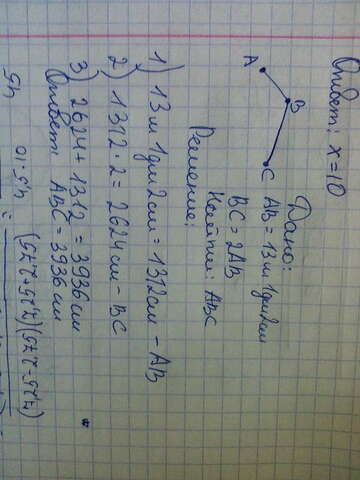 Ответ: x=10
Дано:
A B C AB = 13 м 1 дм 2 см
BC = 2AB
Найти: ABC
Решение:
1) 13 м 1 дм 2 см = 1312 см - AB
2) 1312 · 2 = 2624 см - BC
3) 2624 + 1312 = 3936 см
Ответ: ABC = 3936 см